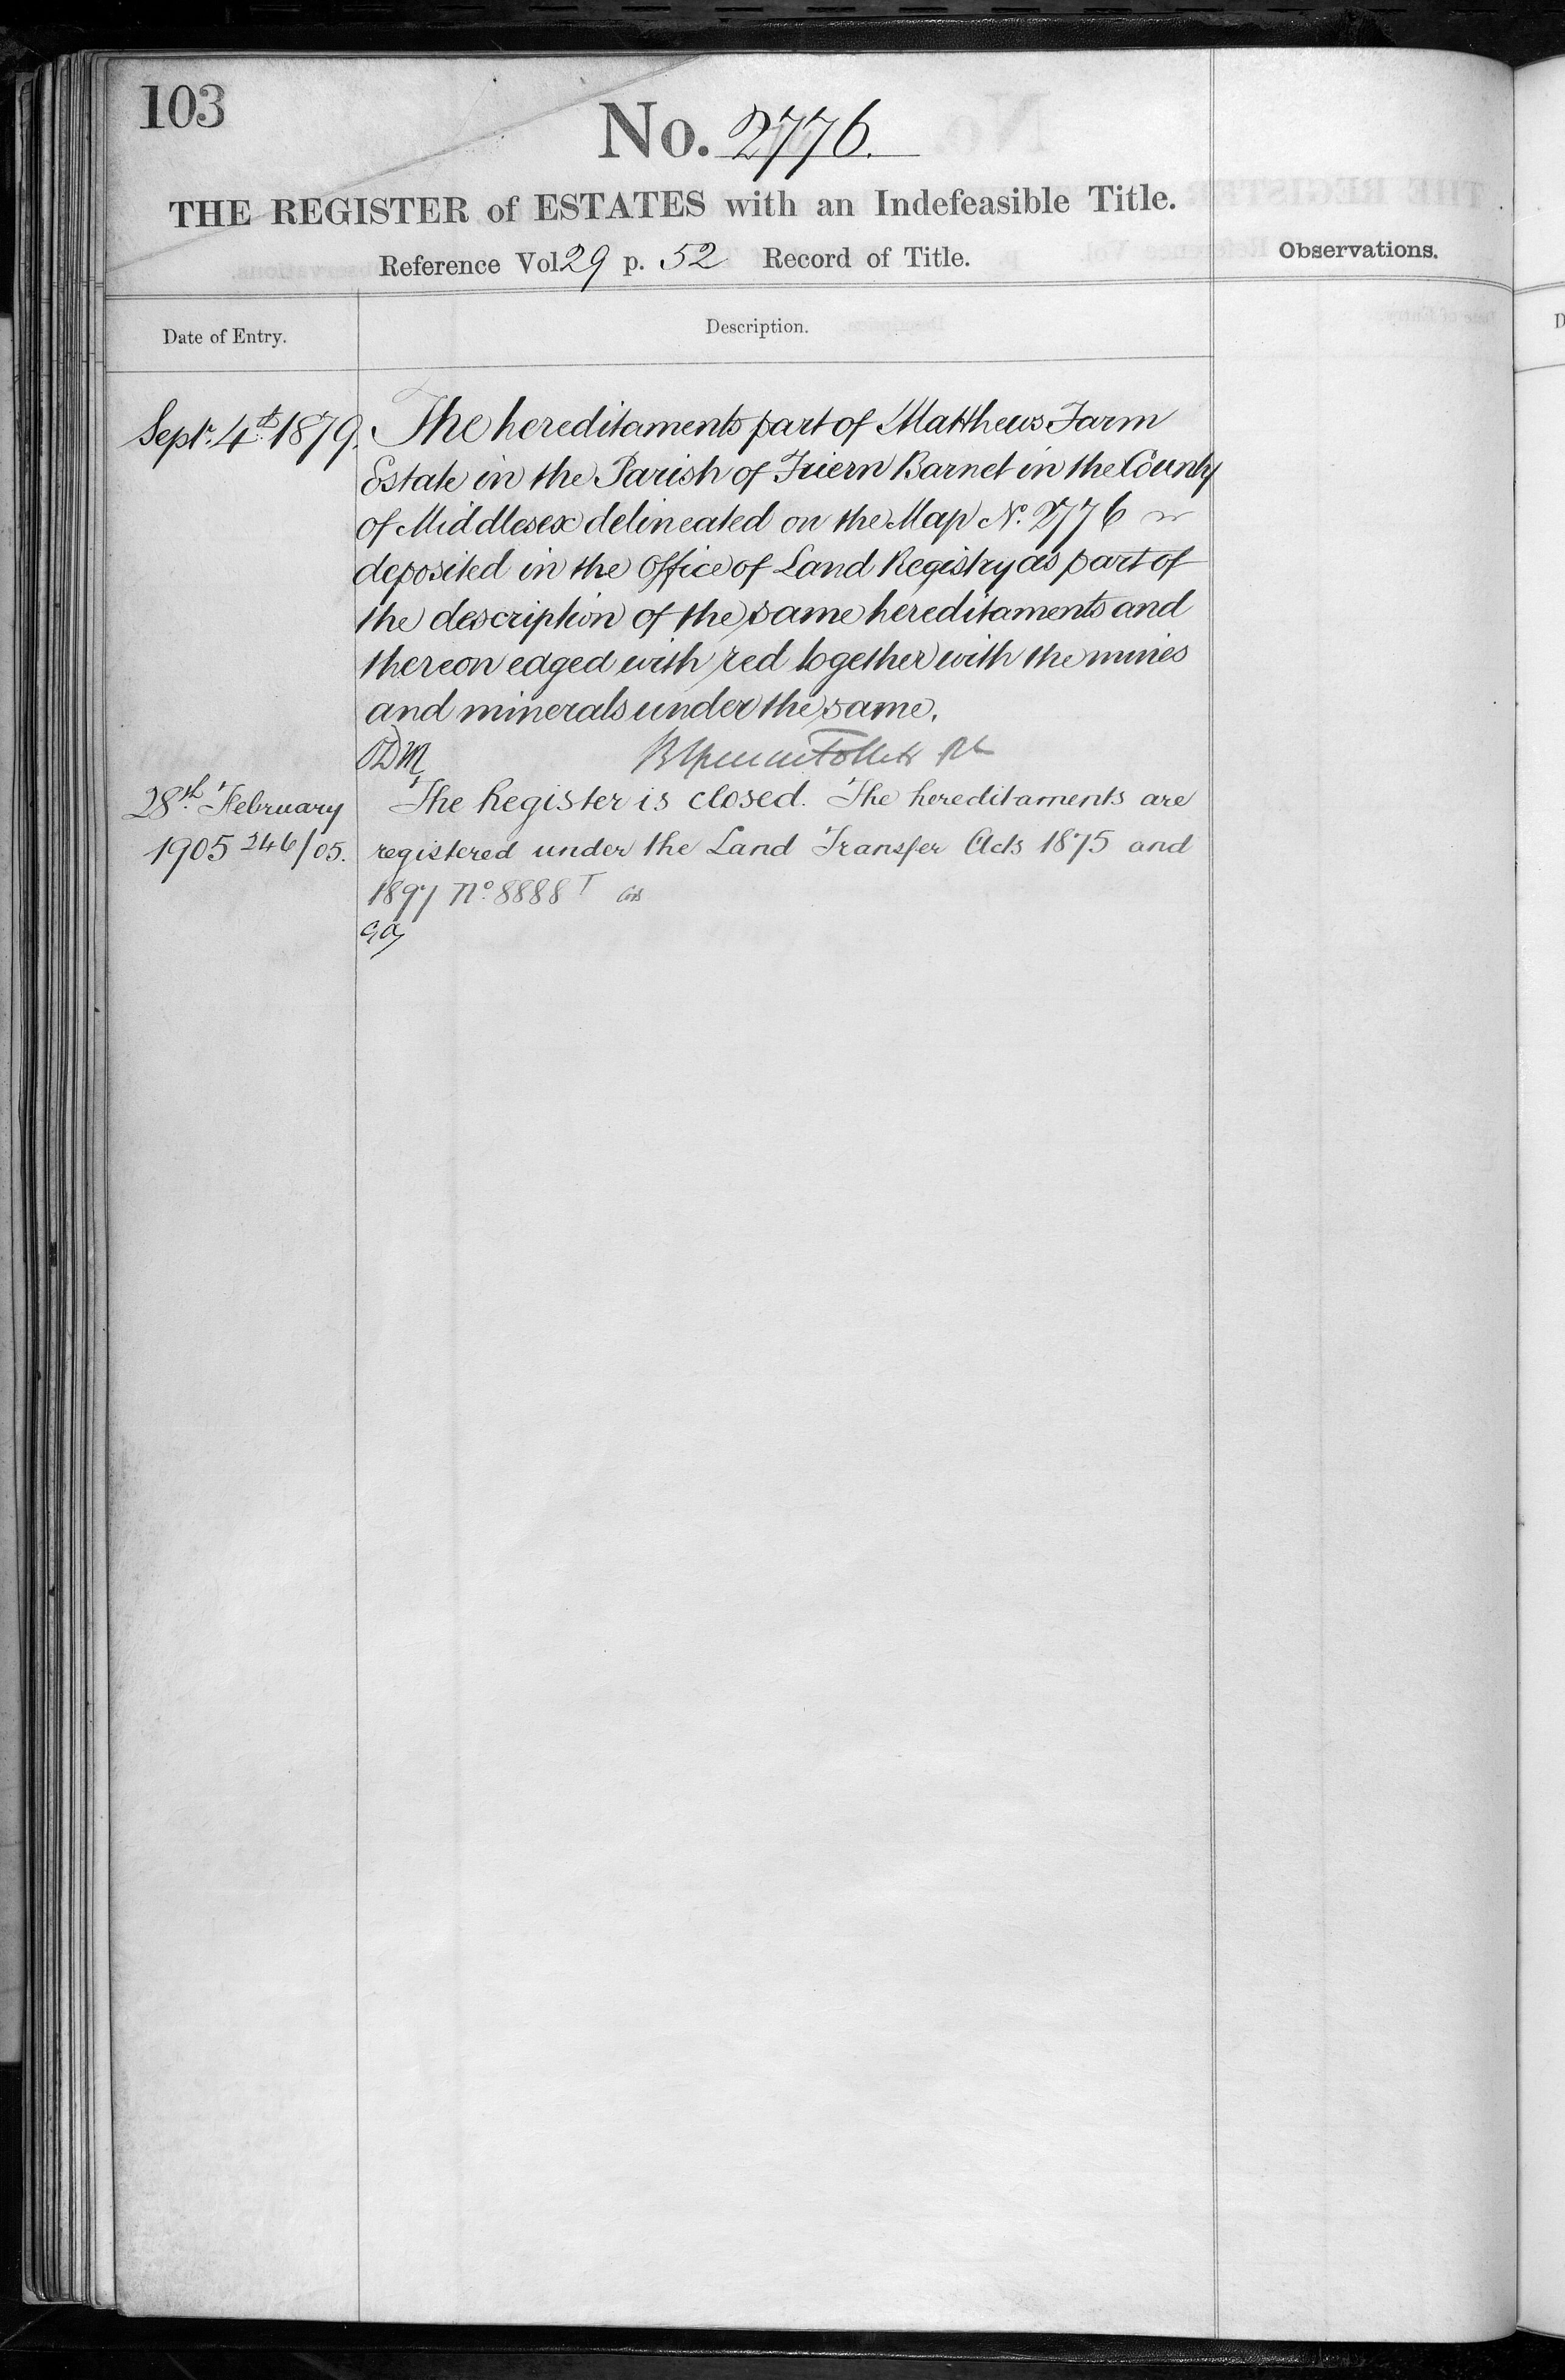 103
No. 2776.
THE REGISTER of ESTATES with an Indefeasible Title.
Reference Vol 29 p. 52 Record of Title.
Observations.
Date of Entry.
Description.
Sepr. 4th 1879.
The hereditaments part of Matthews Farm
Estate in the Parish of Friern Barnet in the County
of Middlesex delineated on the Map No. 2776
deposited in the Office of Land Registry as part of
the description of the same hereditaments and
thereon edged with red together with the mines
and minerals under the same.
Follett
28th February
1905 246/05.
The Register is closed. The hereditaments are
registered under the Land Transfer Acts 1875 and
1897 No. 8888 T